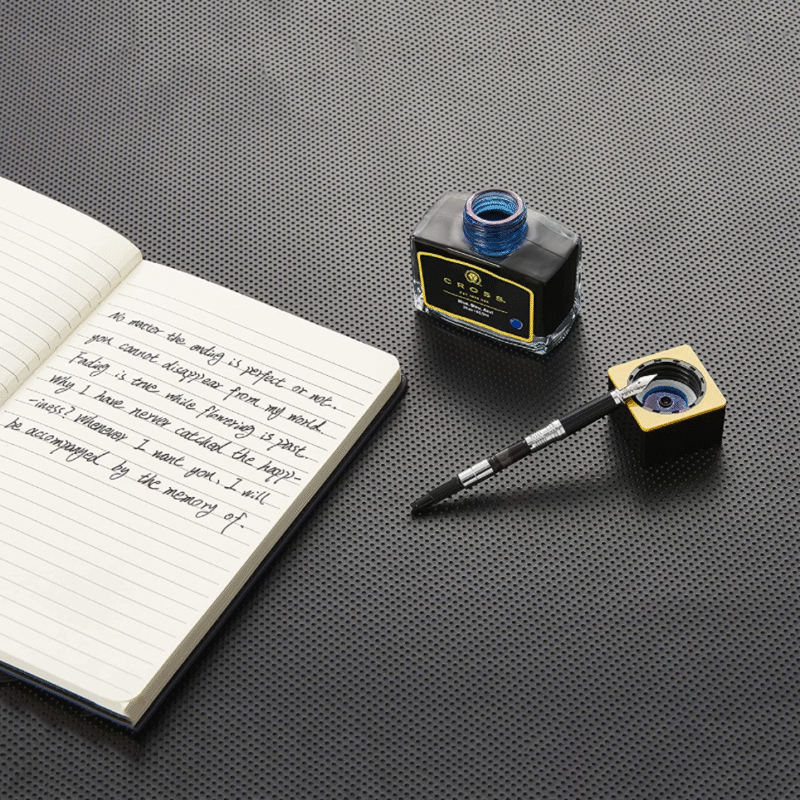 No matter the ending is perfect or not.
you cannot disappear from my world.
Fading is true while flowering is past.
Why I have never catched the happ-
-iness? Whenever I want you, I will
be accompanyed by the memory of.
CROSS
Blue, Bleu, Azul